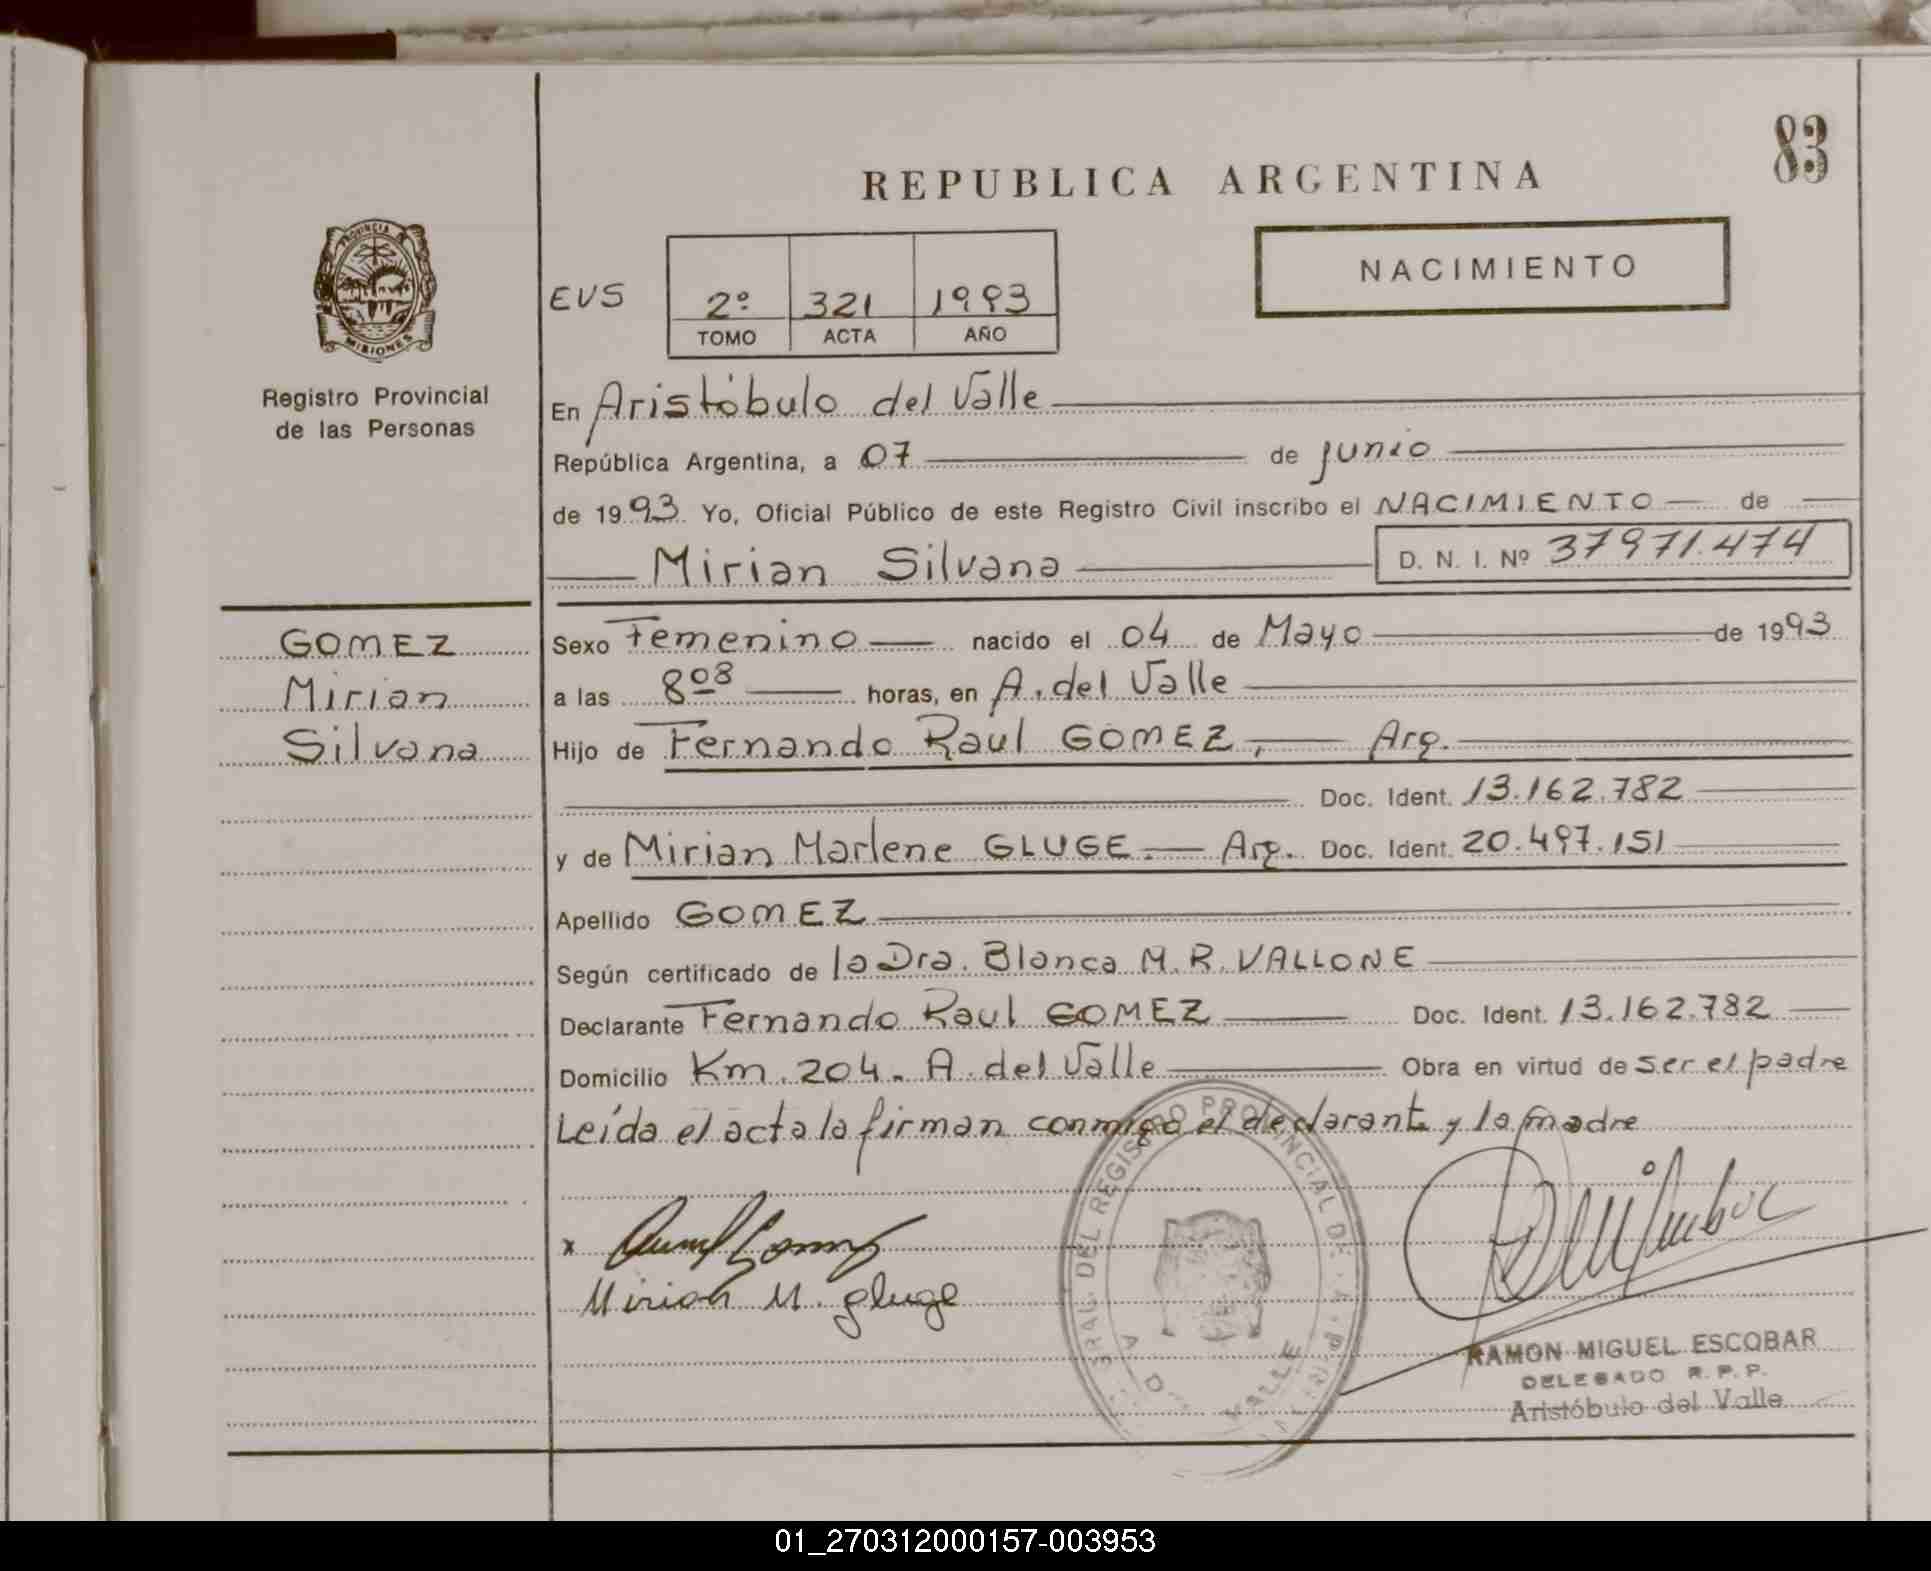 83
REPUBLICA ARGENTINA
PROVINCIA DE
MISIONES
Registro Provincial
de las Personas
NACIMIENTO
EVS
2º 321 1993
TOMO ACTA AÑO
En Aristóbulo del Valle
República Argentina, a 07 de junio
de 1993 Yo, Oficial Público de este Registro Civil inscribo el NACIMIENTO de
Mirian Silvana
D. N. I. Nº 37971.474
GOMEZ
Mirian
Silvana
Sexo Femenino nacido el 04 de Mayo de 1993
a las 8 08 horas, en A. del Valle
Hijo de Fernando Raul GOMEZ, Arg.
Doc. Ident. 13.162.782
y de Mirian Marlene GLUGE. Arg. Doc. Ident. 20.497.151
Apellido GOMEZ
Según certificado de la Dra. Blanca M. R. VALLONE
Declarante Fernando Raul GOMEZ Doc. Ident. 13.162.782
Domicilio Km. 204. A. del Valle Obra en virtud de ser el padre
Leída el acta la firman conmigo el declarante y la madre
x
Mirian M. gluge
DEL REGISTRO PROVINCIAL DE
A. D. VALLE
RAMON MIGUEL ESCOBAR
DELEGADO R. P. P.
Aristóbulo del Valle
01_270312000157-003953